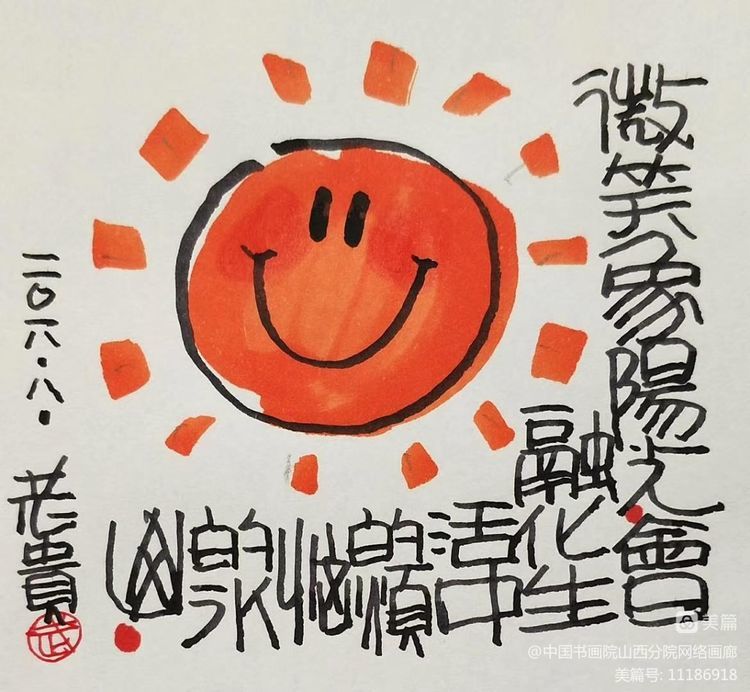 微笑象陽光會
融化生
活中
的煩
惱
的氷
山
二〇一八·八·
老貴
美篇
@中国书画院山西分院网络画廊
美篇号: 11186918